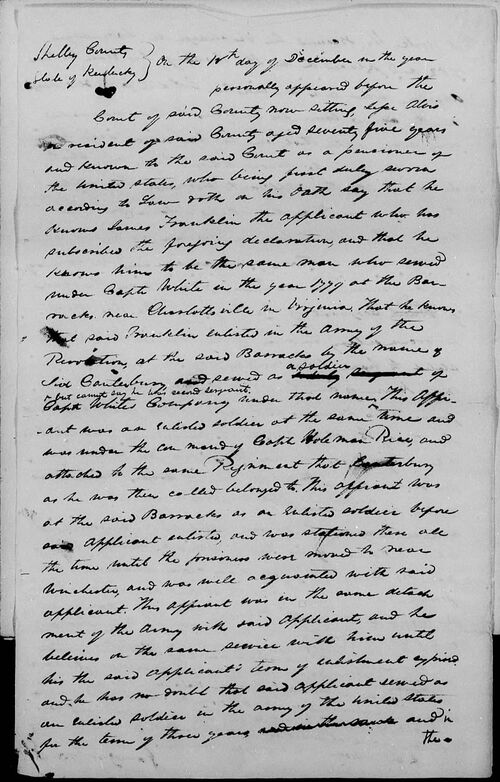 Shelby County
State of Kentucky } On the 10th day of December in the year
personally appeared before the
Court of said County now setting, Alvis
a resident of said County aged seventy five years
and known to the said Court as a pensioner of
the United States, who being first duly sworn
according to Law doth on his Oath say that he
knows James Franklin the applicant who has
subscribed the foregoing declaration, and that he
knows him to be the same man who served
under Capt White in the year 1779 at the Bar
racks near Charlottsville in Virginia that he knows
that said Franklin enlisted in the Army of the
Revolution, at the said Barracks by the name of
Canterbury and served as a soldier
but cannot say he was second sergeant
of
Capt Whites Company under that name. This Affi
ant was an enlisted soldier at the same time and
was under the command of Capt Holeman Rice, and
attached to the same Regiment that Canterbury
as he was then called belonged to. This affiant was
at the said Barracks as an enlisted soldier before
said applicant enlisted, and was stationed there all
the time until the prisoners were moved to near
Winchester, and was well acquainted with said
applicant. This affiant was in the same detach
ment of the Army with said Applicant, and he
believes on the same service with him until
his the said applicant's term of enlistment expired
and he has no doubt that said applicant served as
an enlisted soldier in the army of the United States
for the term of three years and in
the